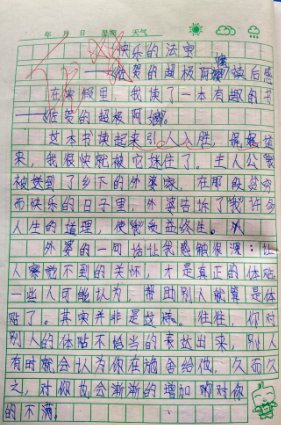 年 月 日 星期 天气
快乐的法宝
——佐贺的超级阿嬷读后感
在寒假里，我读了一本有趣的书
——佐贺的超级阿嬷。
这本书读起来引人入胜，
来，我很快就被它迷住了。主人公
被送到了乡下的外婆家，在那段贫穷
而快乐的日子里，外婆告诉了我许多
人生的道理，使我受益终生。
外婆的一句话让我感触很深：让
人察觉不到的关怀，才是真正的体贴
一些人可能认为，帮助别人就算是体
贴了。其实并非是这样。往往，你对
别人的体贴不恰当的表达出来，别人
有时就会认为你在施舍给他，久而久
之，对你也会渐渐的增加啊对你
的不满。